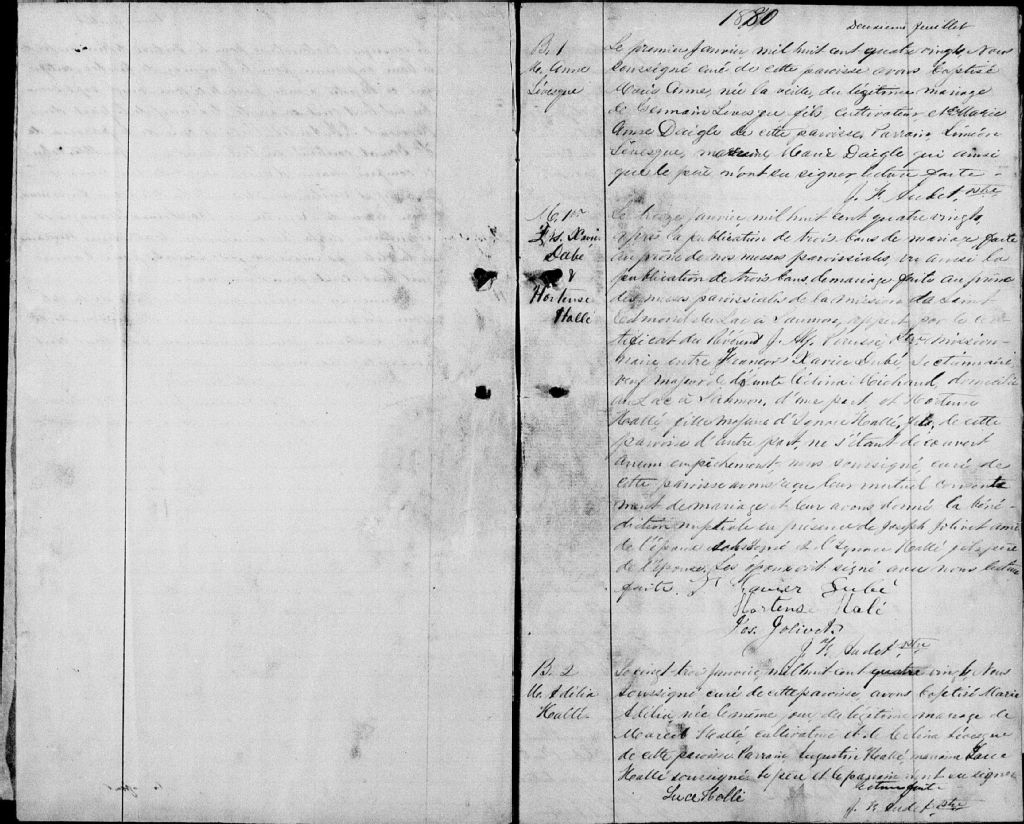 1880
Deuxième feuillet
B. 1
M. Anne
Lévesque
Le premier Janvier mil huit cent quatre vingt, Nous
soussigné curé de cette paroisse avons baptisé
Marie Anne, née la veille, du légitime mariage
de Germain Lévesque fils, cultivateur et de Marie
Anne Daigle de cette paroisse. Parrain
Lévesque, marraine Marie Daigle qui ainsi
que le père n'ont su signer, lecture faite.
J. F. Audet, ptre
M. 1er
Frs. Xavier
Dubé
&
Hortense
Hallé
Le treize Janvier mil huit cent quatre vingt,
après la publication de trois bans de mariage faite
au prône de nos messes paroissiales, vu aussi la
publication de trois bans de mariage faite au prône
des messes paroissiales de la mission de Saint
Edmond du Lac à Saumon, appert par le cer-
tificat du Révérend J. Alf. ptre mission-
naire entre François Xavier Dubé Sectionnaire,
veuf majeur de défunte Célina Michaud, domicilié
au Lac à Saumon, d'une part et Hortense
Hallé, fille majeure d'Ignace Hallé, de cette
paroisse d'autre part, ne s'étant découvert
aucun empêchement, nous soussigné, curé de
cette paroisse avons reçu leur mutuel consente
ment de mariage et leur avons donné la béné-
diction nuptiale en présence de Joseph Jolivet ami
de l'époux soussigné et d'Ignace Hallé père
de l'épouse. Les époux ont signé avec nous lecture
faite. F Xavier Dubé
Hortense Halé
Jos. Jolivet
J. F. Audet ptre
B. 2
M. Adélia
Hallé
Le vingt trois Janvier mil huit cent quatre vingt, Nous
soussigné curé de cette paroisse, avons baptisé Marie
Adélia, née le même jour du légitime mariage de
Marcel Hallé cultivateur et de Célina Lévesque
de cette paroisse Parrain Augustin Hallé, marraine Luce
Hallé soussignée. Le père et le parrain n'ont su signer
lecture faite
Luce Hallé
J. F. Audet ptre